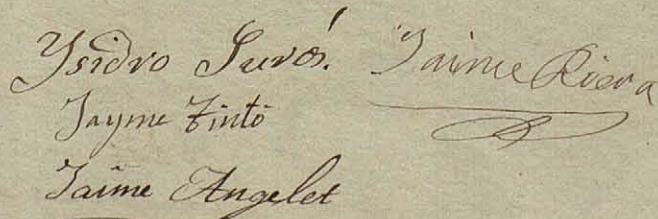 Ysidro Surós. Jaime Riera
Jayme Tintó
Jaime Angelet